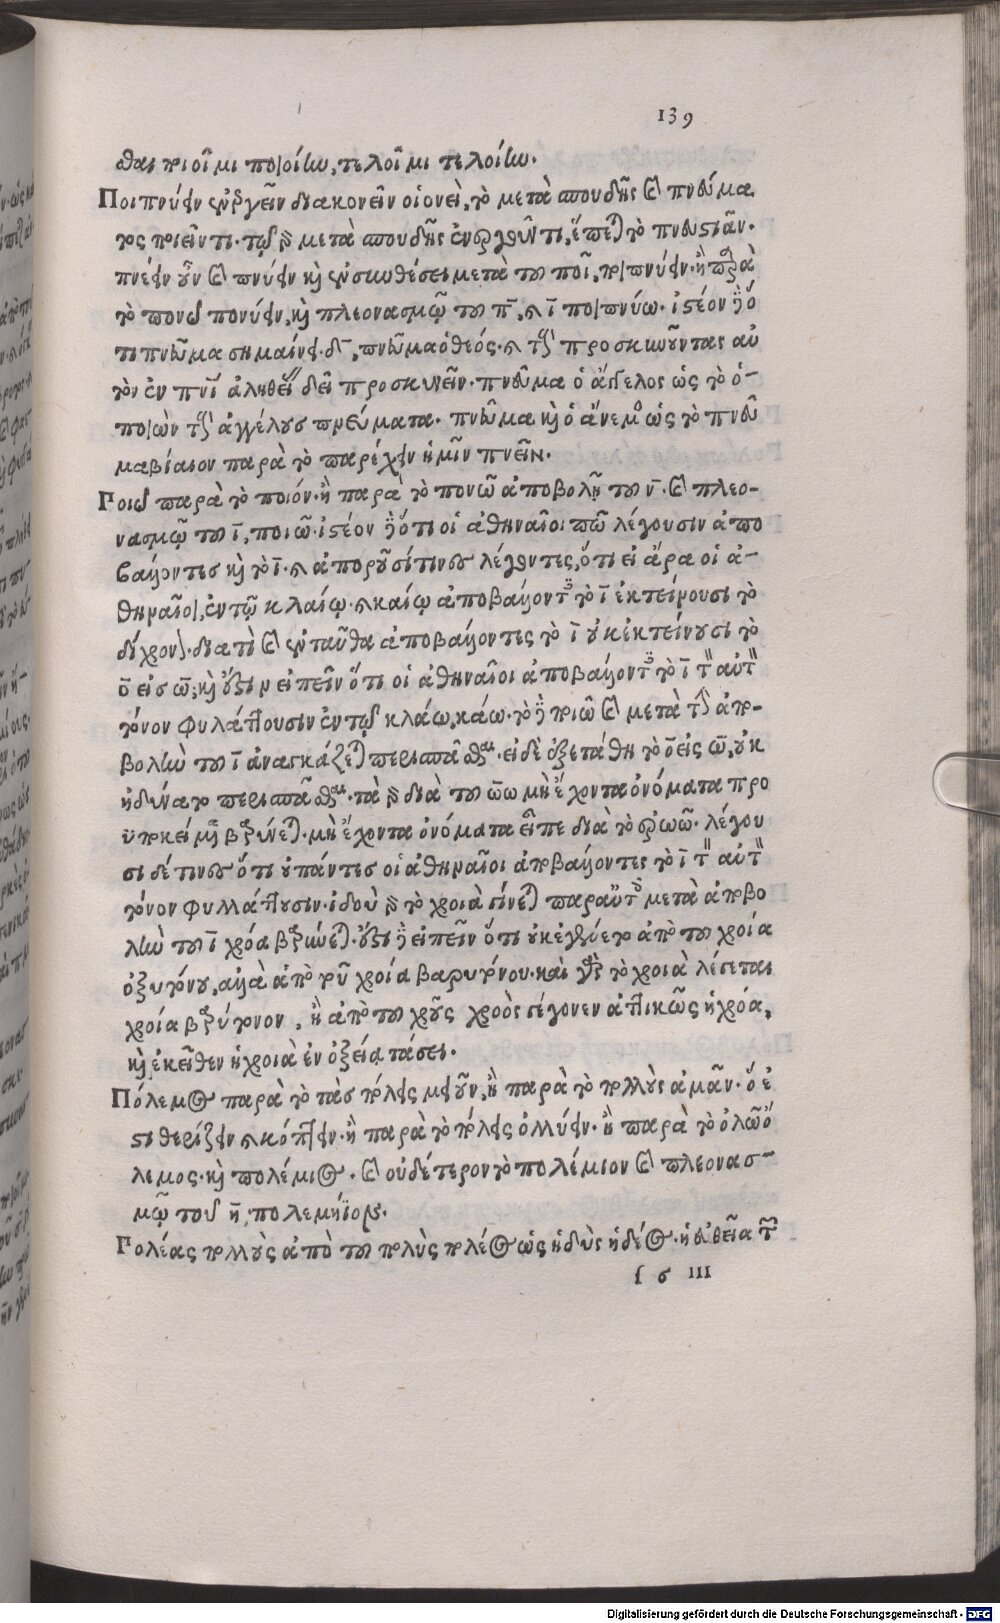 139
θαι ποιοῖμι ποιοίην, τελοῖμι τελοίην.
Ποιπνύειν ἐνεργεῖν διακονεῖν οἱονεὶ, τὸ μετὰ σπουδῆς καὶ πνεύμα
τος ποιεῖν τι. τῷ γὰρ μετὰ σπουδῆς ἐνεργοῦντι, ἕπεται τὸ πνευστιᾶν.
πνέειν οὖν καὶ πνύειν καὶ ἐν συνθέσει μετὰ τοῦ ποῖ, ποιπνύειν. ἢ παρὰ
τὸ πονῶ πονύειν, καὶ πλεονασμῷ τοῦ π̄, καὶ ῑ ποιπνύω. ἰστέον δὲ ὅ
τι πνεῦμα σημαίνει δ̄, πνεῦμα ὁ θεός. καὶ τοὺς προσκυνοῦντας αὐ
τὸν ἐν πνῑ ἀληθείας δεῖ προσκυνεῖν. πνεῦμα ὁ ἄγγελος ὡς τὸ ὁ-
ποιῶν τοὺς ἀγγέλους πνεύματα. πνεῦμα καὶ ὁ ἄνεμος ὡς τὸ πνεῦ
μα βίαιον παρὰ τὸ παρέχειν ἡμῖν πνεῖν.
Ποιῶ παρὰ τὸ ποιόν. ἢ παρὰ τὸ πονῶ ἀποβολῇ τοῦ ν̄. καὶ πλεο-
νασμῷ τοῦ ῑ, ποιῶ. ἰστέον δὲ ὅτι οἱ ἀθηναῖοι πῶ λέγουσιν ἀπο
βάλλοντες καὶ τὸ ῑ. καὶ ἀποροῦσί τινες λέγοντες, ὅτι εἰ ἄρα οἱ ἀ-
θηναῖοι, ἐν τῷ κλαίω. καὶ καίω ἀποβάλλοντες τὸ ῑ ἐκτείνουσι τὸ
δίχρονον. διατὶ καὶ ἐνταῦθα ἀποβάλλοντες τὸ ῑ οὐκ ἐκτείνουσι τὸ
ο̄ εἰς ω̄; καὶ ἔστιν εἰπεῖν ὅτι οἱ ἀθηναῖοι ἀποβάλλοντες τὸ ῑ τὸν αὐτὸν
τόνον φυλάττουσιν ἐν τῷ κλάω, κάω. τὸ δὲ ποιῶ καὶ μετὰ τὴν ἀπο-
βολὴν τοῦ ῑ ἀναγκάζεται περισπᾶσθαι. εἰ δὲ ἐξετάθη τὸ ο̄ εἰς ω̄, οὐκ
ἠδύνατο περισπᾶσθαι. τὰ γὰρ διὰ τοῦ ωω μὴ ἔχοντα ὀνόματα προ
λέγου
σι δέ τινες ὅτι οὐ πάντες οἱ ἀθηναῖοι ἀποβάλλοντες τὸ ῑ τὸν αὐτὸν
τόνον φυλλάττουσιν. ἰδοὺ γὰρ τὸ χροιὰ γίνεται παρ' αὐτοῖς μετὰ ἀποβο
λὴν τοῦ ῑ χρόα βαρύνεται. ἔστι δὲ εἰπεῖν ὅτι οὐκ ἐγένετο ἀπὸ τοῦ χροιὰ
ὀξυτόνου, ἀλλὰ ἀπὸ τοῦ χροία βαρυτόνου. καὶ γὰρ τὸ χροιὰ λέγεται
χροία βαρύτονον, ἢ ἀπὸ τοῦ χροῦς χροὸς γέγονεν ἀττικῶς ἡ χρόα,
καὶ ἐκεῖθεν ἡ χροιὰ ἐν ὀξείᾳ τάσει.
Πόλεμος παρὰ τὸ τὰς πόλεις μειοῦν, ἢ παρὰ τὸ πολλοὺς ἀμᾶν. ὅ ἐ
στι θερίζειν καὶ κόπτειν. ἢ παρὰ τὸ πόλεις ὀλλύειν. ἢ παρὰ τὸ ὀλῶ ὄ
λεμος. καὶ πολέμιος. καὶ οὐδέτερον τὸ πολέμιον καὶ πλεονασ-
μῷ τοῦ η̄. πολεμήϊον.
Πολέας πολλοὺς ἀπὸ τοῦ πολὺς πολέος ὡς ἡδὺς ἡδέος. ἡ εὐθεῖα τῶν
ſ 6 III
Digitalisierung gefördert durch die Deutsche Forschungsgemeinschaft - DFG